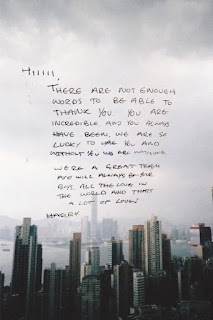 Hiiiii!
THERE ARE NOT ENOUGH
WORDS TO BE ABLE TO
THANK YOU. YOU ARE
INCREDIBLE AND YOU ALWAYS
HAVE BEEN. WE ARE SO
LUCKY TO HAVE YOU AND
WITHOUT YOU WE ARE NOTHING
WE'RE A GREAT TEAM
AND WILL ALWAYS BE YOUR
BOYS. ALL THE LOVE IN
THE WORLD AND THATS
A LOT OF LOVE!
HARRY